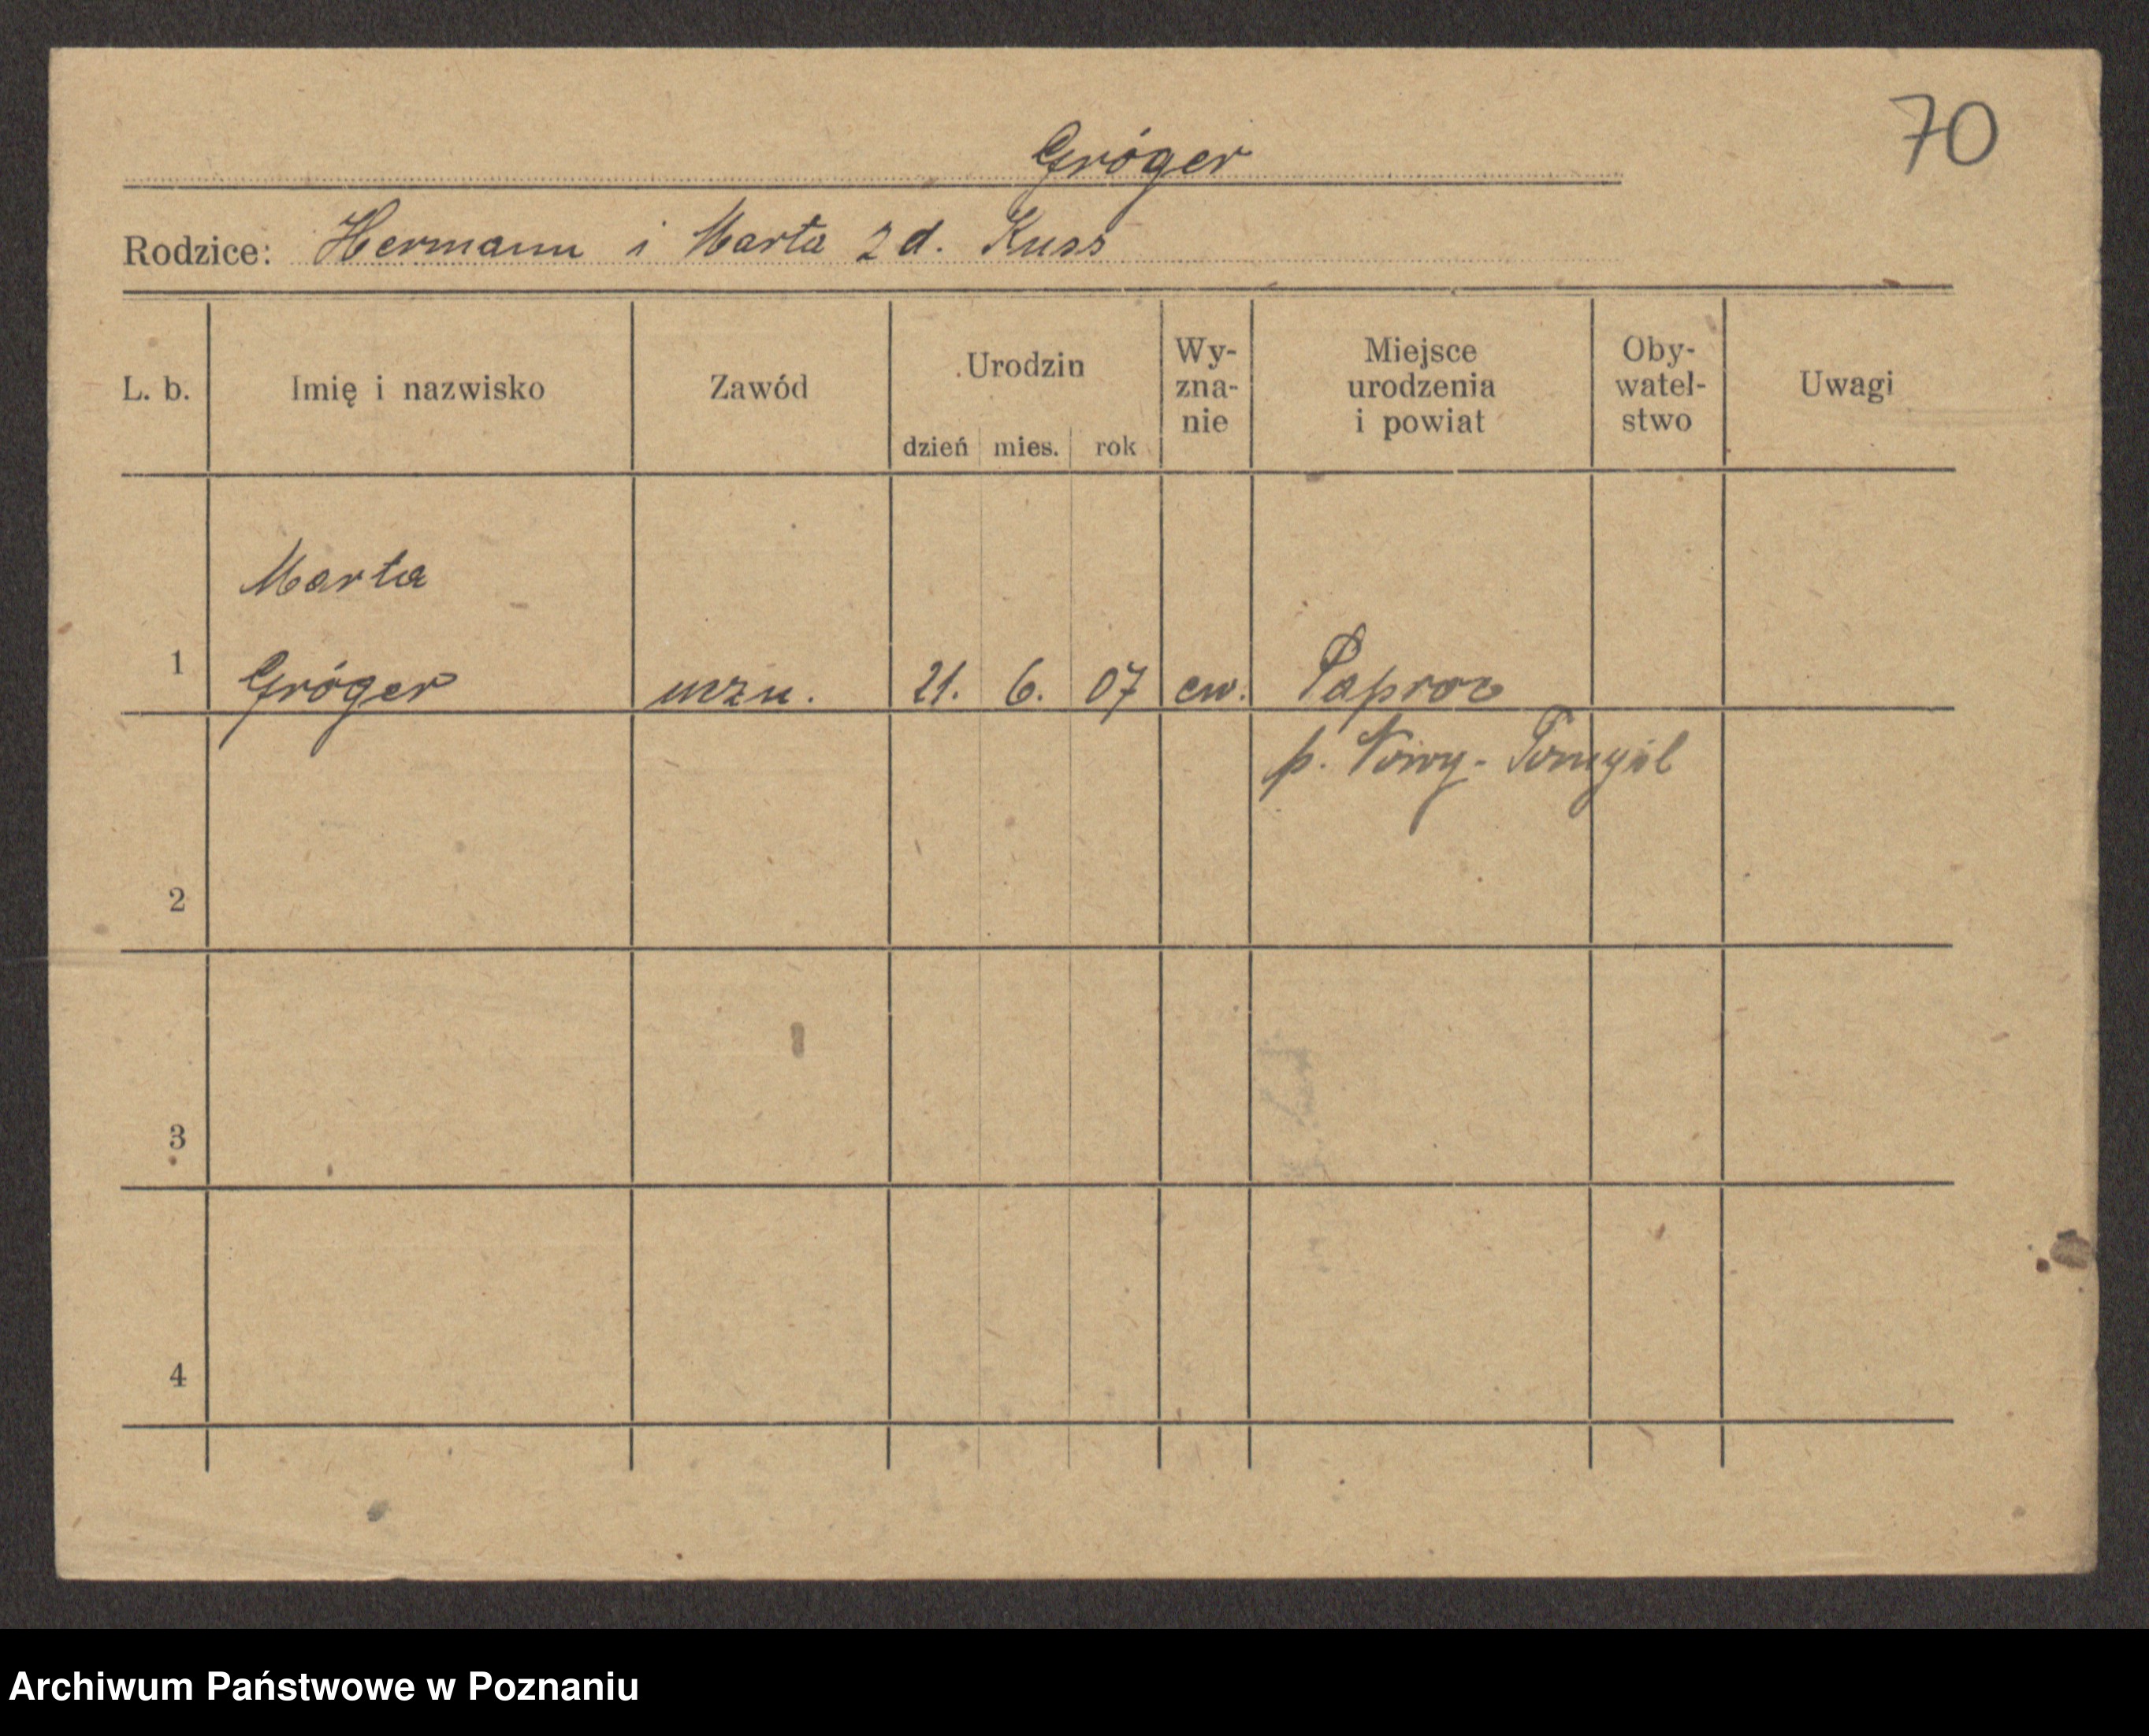 70
Gröger
Rodzice: Hermann i Marta z d. Kuss
L. b. Imię i nazwisko Zawód Urodzin dzień mies. rok Wy-zna-nie Miejsce urodzenia i powiat Oby-watel-stwo Uwagi
Marta
1 Gröger 21. 6. 07 ew. Paproc
p. Nowy-Tomyśl
2
3
4
Archiwum Państwowe w Poznaniu